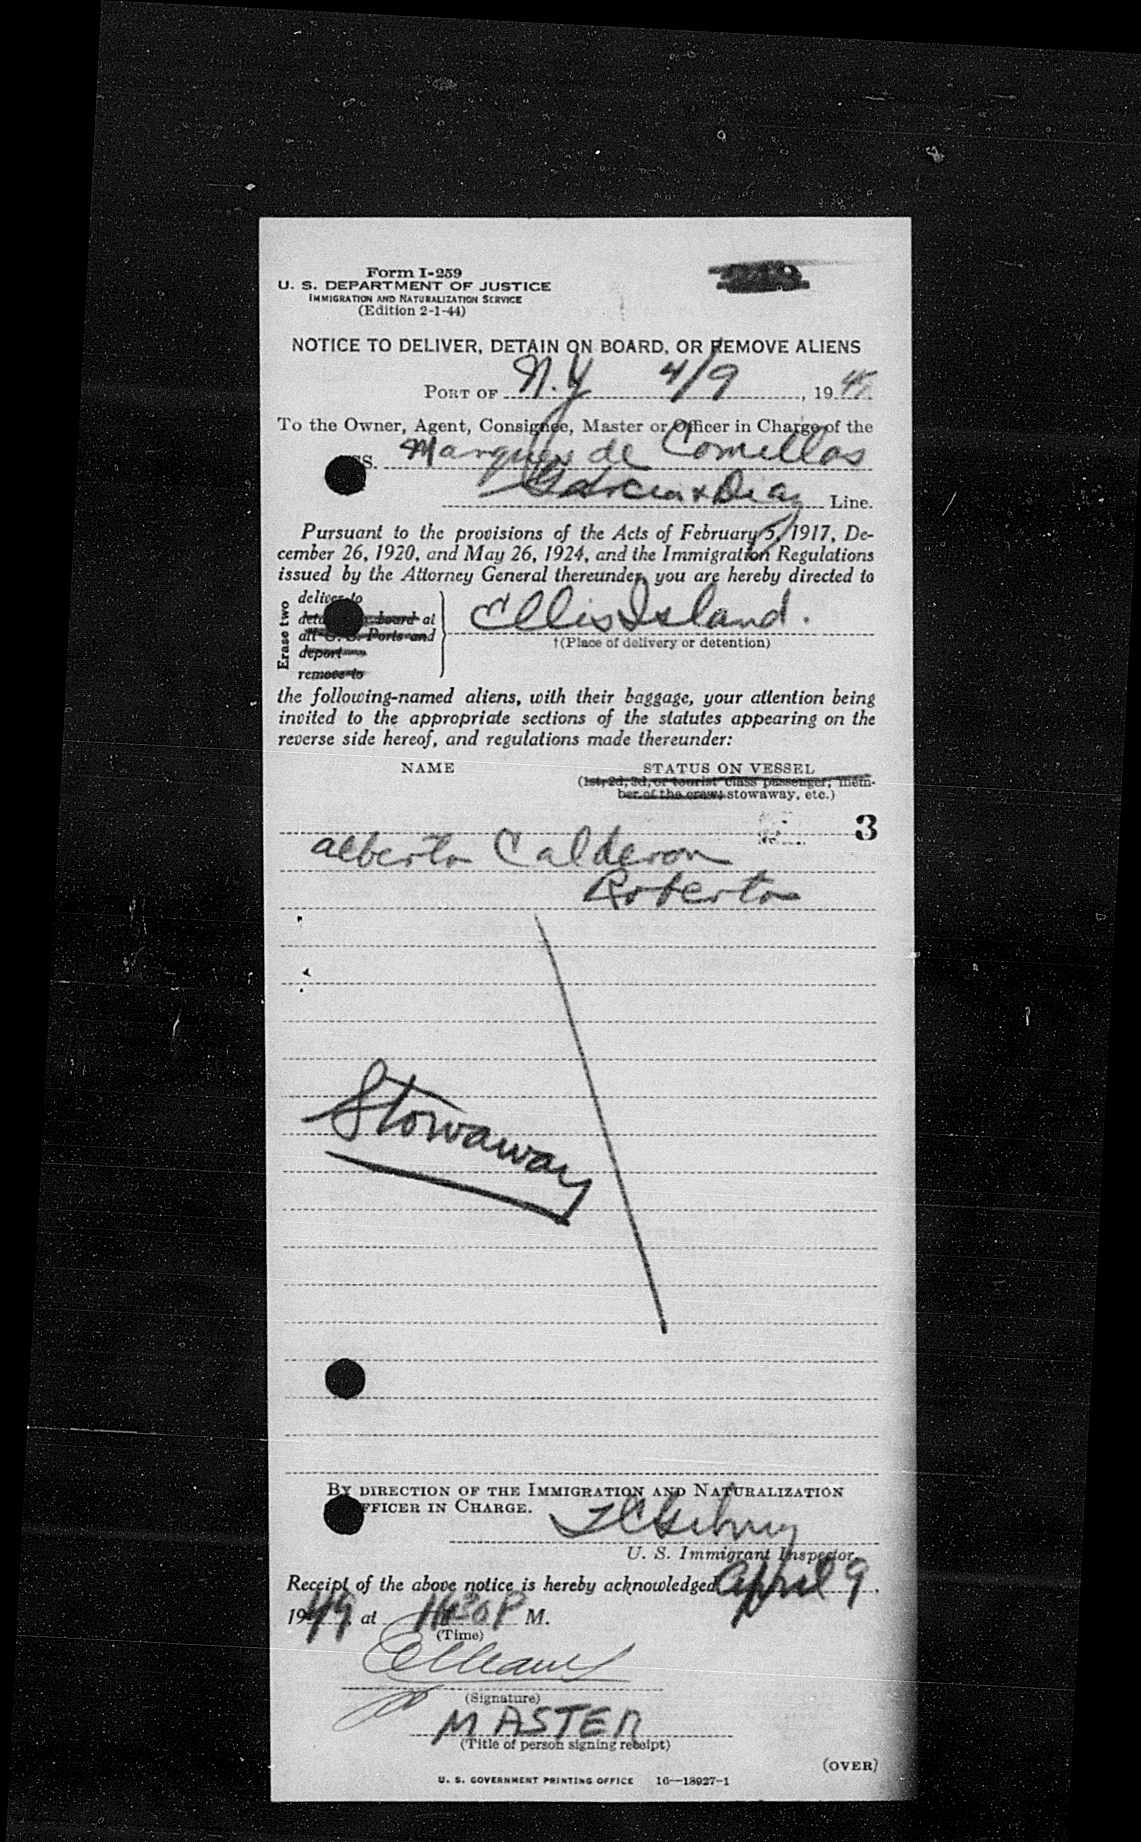 Form I-259
U. S. DEPARTMENT OF JUSTICE
IMMIGRATION AND NATURALIZATION SERVICE
(Edition 2-1-44)
NOTICE TO DELIVER, DETAIN ON BOARD, OR REMOVE ALIENS
PORT OF N.Y 4/9, 19
To the Owner, Agent, Consignee, Master or Officer in Charge of the
SS. Marques de Comillas
Garcia & Diaz Line.
Pursuant to the provisions of the Acts of February 5, 1917, De-
cember 26, 1920, and May 26, 1924, and the Immigration Regulations
issued by the Attorney General thereunder, you are hereby directed to
Erase two
deliver to
board at
all U. S. Ports and
deport
remove to
Ellis Island.
†(Place of delivery or detention)
the following-named aliens, with their baggage, your attention being
invited to the appropriate sections of the statutes appearing on the
reverse side hereof, and regulations made thereunder:
NAME STATUS ON VESSEL
(1st, 2d, 3d, or tourist class passenger, mem-
ber of the crew, stowaway, etc.)
3
Alberto Calderon
Roberto
Stowaway
BY DIRECTION OF THE IMMIGRATION AND NATURALIZATION
OFFICER IN CHARGE.
U. S. Immigrant Inspector.
Receipt of the above notice is hereby acknowledged April 9,
1949 at P M.
(Time)
(Signature)
MASTER
(Title of person signing receipt)
(OVER)
U. S. GOVERNMENT PRINTING OFFICE 16—18927-1